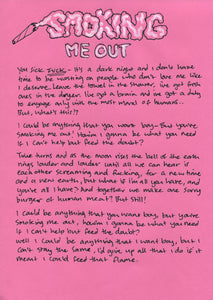 SMOKING
ME OUT
You sick suck - it's a dark night and I don't have
time to be wasting on people who don't love me like
I deserve. Leave the towel in the shower. I've got fresh
ones in the dryer. I've got a brain and I've got a duty
to engage only with the most moral of humans...
But, what's this!?
I could be anything that you want boy - but you're
smoking me out. How'm I gonna be what you need
if I can't help but feed the doubt?
Take turns and as the moon rises the bell of the earth
rings louder and louder until all we can hear is
each other screaming and fucking, for a new time
and a new earth, but what is I'm all you have, and
you're all I have? And together we make one sorry
burger of human meat? But still!
I could be anything that you want boy, but you're
smoking me out, how'm I gonna be what you need
if I can't help but feed the doubt?
Well I could be anything that I want boy, but I
can't stay the same, I'd give up all that I do is it
meant I could feed that flame.